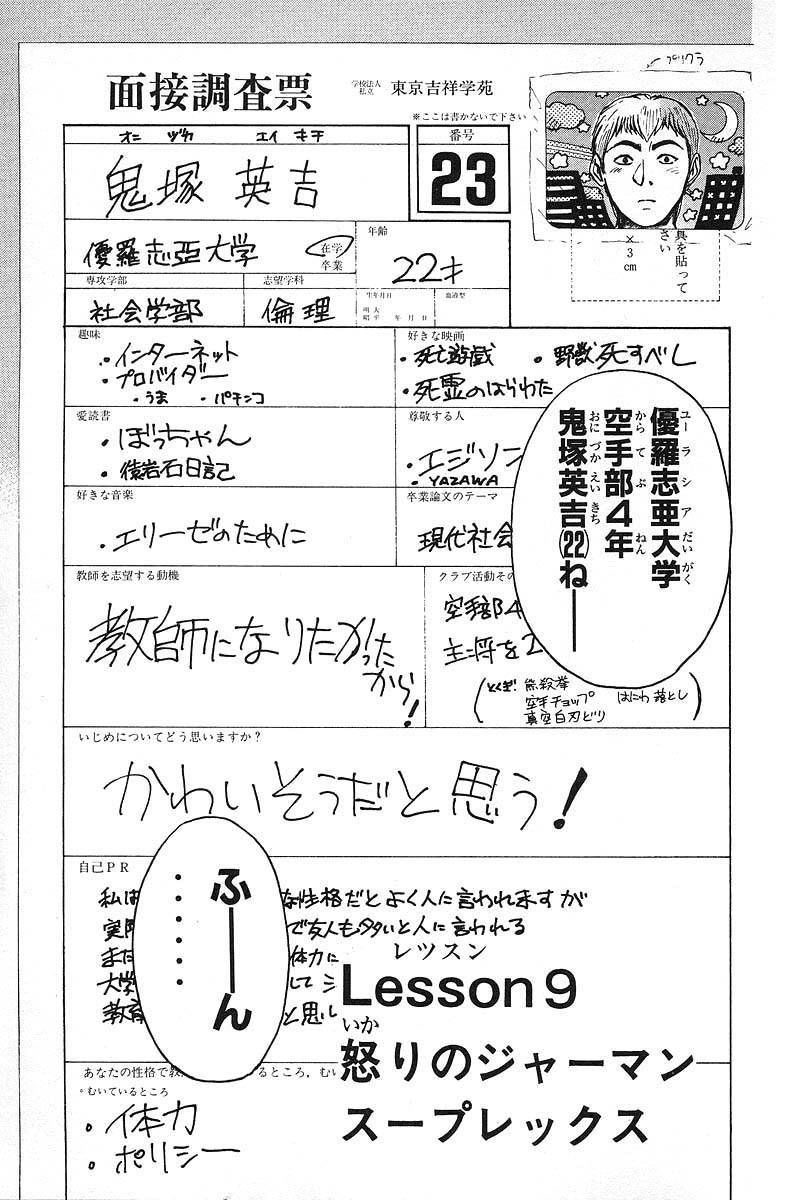 プリクラ
面接調査票
学校法人
私立
東京吉祥学苑
※ここは書かないで下さい
オニ ヅカ エイ キチ
鬼塚 英吉
番号
23
真を貼って
さい
×3cm
優羅志亜大学
在学
卒業
年齢
22才
専攻学部
社会学部
志望学科
倫理
生年月日
明 大
昭 平 年 月 日
血液型
趣味
・インターネット
・プロバイダー
・うま ・パチンコ
好きな映画
・死亡遊戯 ・野獣死すべし
・死霊のはらわた
愛読書
・ぼっちゃん
・猿岩石日記
尊敬する人
・エジソン
・YAZAWA
好きな音楽
・エリーゼのために
卒業論文のテーマ
現代社会
優羅志亜大学
ユーラシアだいがく
空手部4年
からてぶ ねん
鬼塚英吉(22)ねー
おにづかえいきち
教師を志望する動機
教師になりたかった
から!
クラブ活動その
空手部4
主将を2
とくぎ: 熊殺拳
空手チョップ はにわ落とし
真空白刃どり
いじめについてどう思いますか?
かわいそうだと思う!
自己PR
私は
な性格だとよく人に言われますが
実際
で友人も多いと人に言われる
また
体力に
大学
して
教育
と思し
ふーん
・・・・・・
レッスン
Lesson 9
いか
怒りのジャーマン
スープレックス
あなたの性格で教
いるところ,むい
◦むいているところ
・体力
・ポリシー